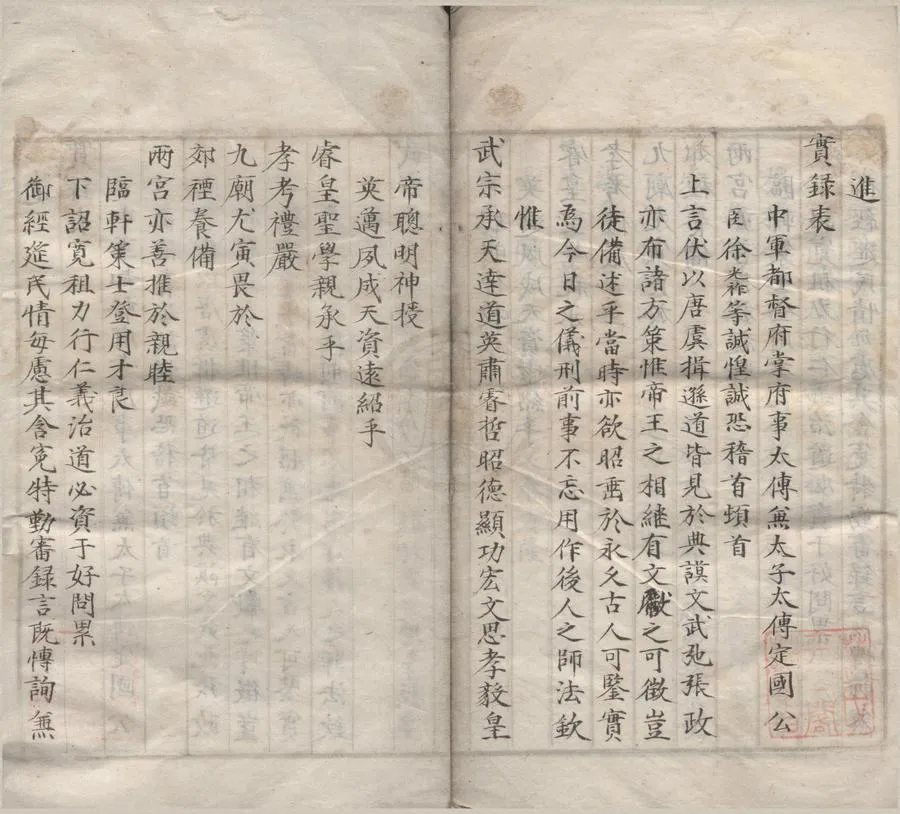 進
實録表
中軍都督府掌府事太傳兼太子太傳定國公
臣徐光祚等誠惶誠恐稽首頓首
上言伏以唐虞揖遜道皆見於典謨文武弛張政
亦布諸方策惟帝王之相継有文獻之可徵豈
徒備述乎當時亦欲昭垂於永久古人可鑒實
為今日之儀刑前事不忘用作後人之師法欽
惟
武宗承天達道英肅睿哲昭德顯功宏文思孝毅皇
帝聰明神授
英邁夙成天資遠紹乎
睿皇聖學親承乎
孝考禮嚴
九廟尤寅畏於
郊禋養備
兩宮亦善推於親睦
臨軒策士登用才良
下詔寬租力行仁義治道必資于好問累
御經筵民情每慮其含寃特勤審録言既慱詢兼